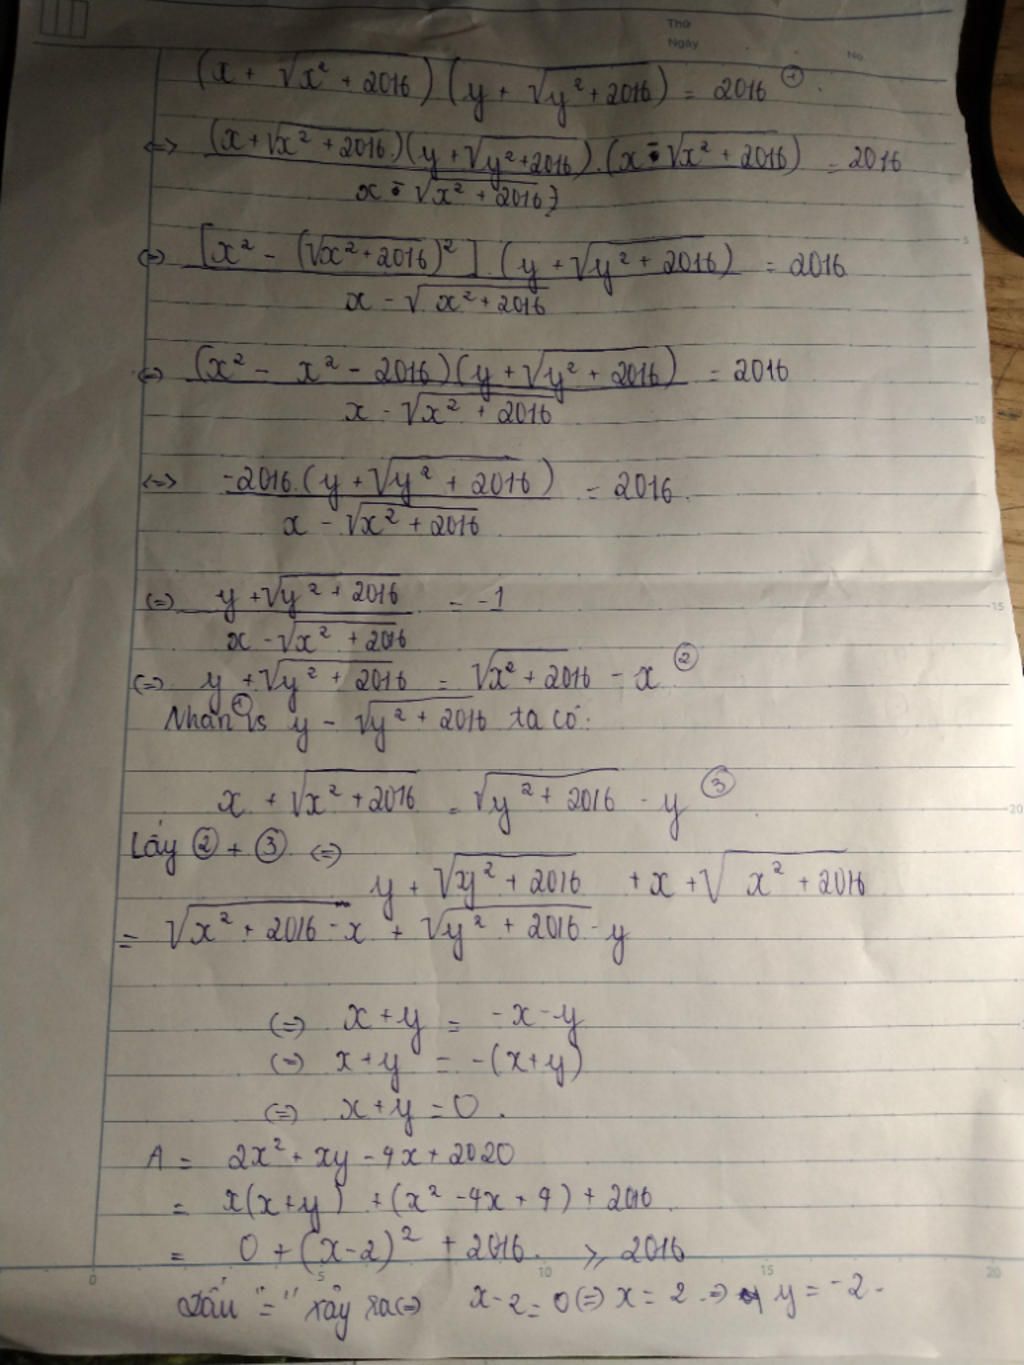 Thứ
Ngày
No.
(x + √(x² + 2016)) (y + √(y² + 2016)) = 2016 ①.
<=> (x + √(x² + 2016))(y + √(y² + 2016)).(x - √(x² + 2016)) = 2016
x - √(x² + 2016)
<=> [x² - (√(x² + 2016))²].(y + √(y² + 2016)) = 2016
x - √(x² + 2016)
<=> (x² - x² - 2016)(y + √(y² + 2016)) = 2016
x - √(x² + 2016)
<=> -2016.(y + √(y² + 2016)) = 2016.
x - √(x² + 2016)
<=> y + √(y² + 2016) = -1
x - √(x² + 2016)
<=> y + √(y² + 2016) = √(x² + 2016) - x ②
Nhân ① vs y - √(y² + 2016) ta có:
x + √(x² + 2016) = √(y² + 2016) - y ③
Lấy ② + ③ <=>
y + √(y² + 2016) + x + √(x² + 2016)
= √(x² + 2016) - x + √(y² + 2016) - y
<=> x + y = -x - y
<=> x + y = -(x + y)
<=> x + y = 0.
A = 2x² + xy - 4x + 2020
= x(x + y) + (x² - 4x + 4) + 2016.
= 0 + (x - 2)² + 2016. ≥ 2016
Dấu "=" xảy ra <=> x - 2 = 0 <=> x = 2 => y = -2.
5
10
15
20
0
5
10
15
20